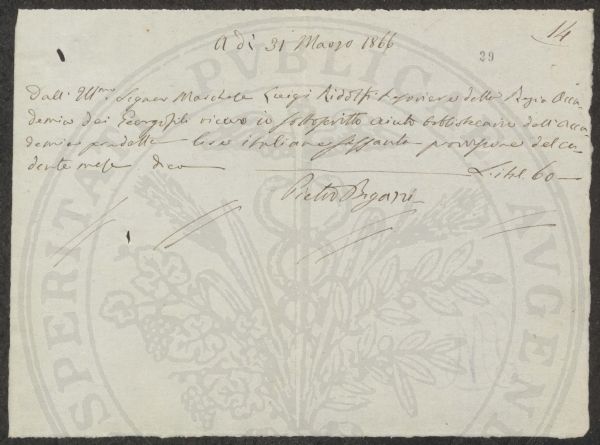 14
A dì 31 Marzo 1866
29
Dall' Illmo. Signor Marchese Luigi Ridolfi Tesoriere della Regia Acca-
demia dei Georgofili ricevo io sottoscritto aiuto bibliotecario dell'Acca-
demia predetta lire italiane sessanta provvisione del ca-
dente mese dico L. itel. 60 —
Pietro Bigazzi
PVBLIC
SPERITA
AVGEND